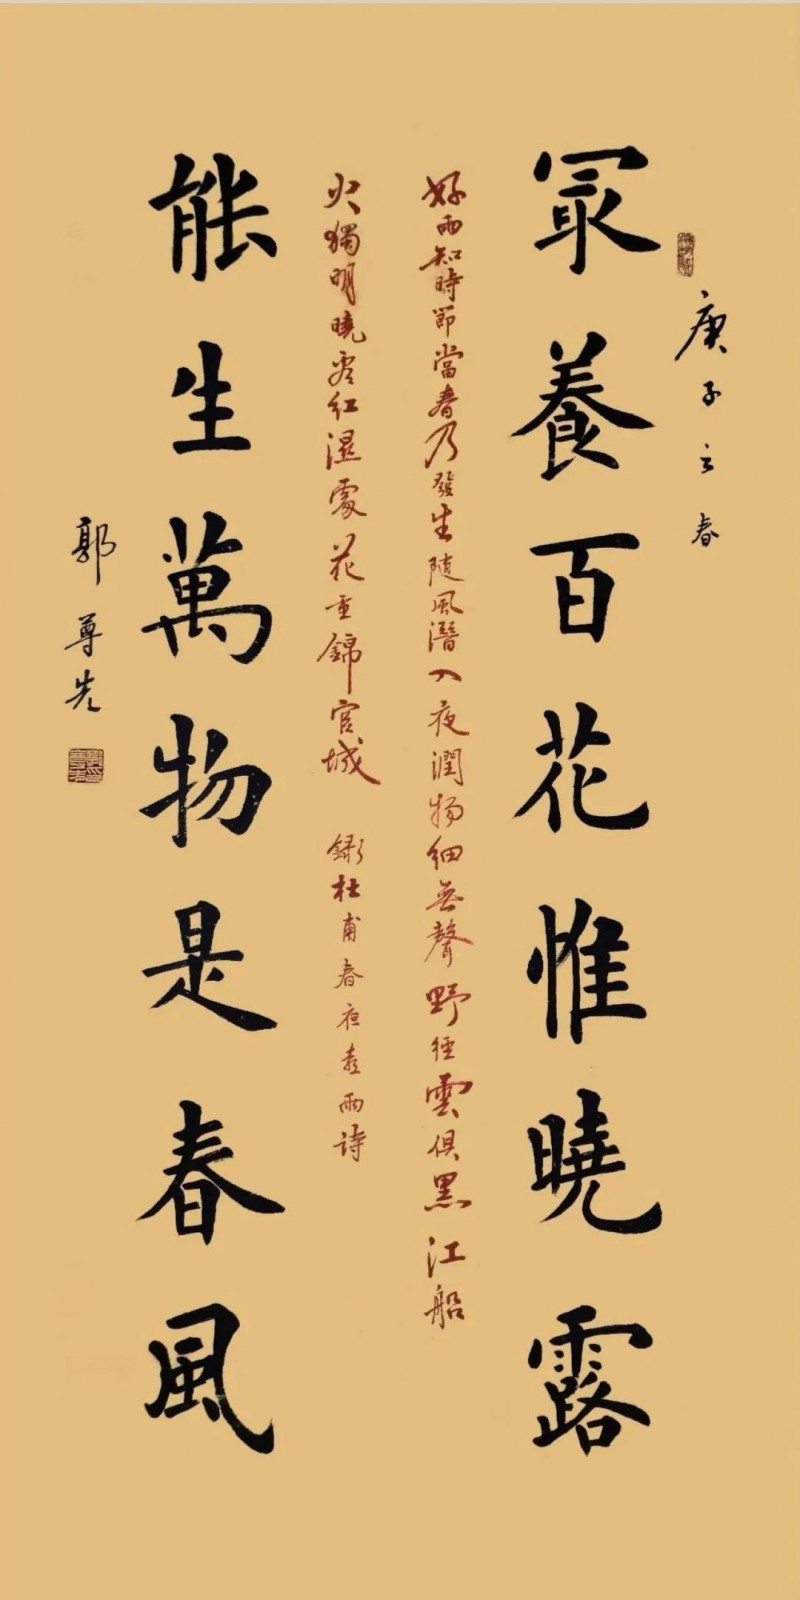 庚子之春
冣養百花惟曉露
好雨知時節當春乃發生随風潛入夜潤物細無聲野徑雲俱黑江船
火獨明曉看紅濕處花重錦官城 錄杜甫春夜喜雨詩
能生萬物是春風
郭尊先